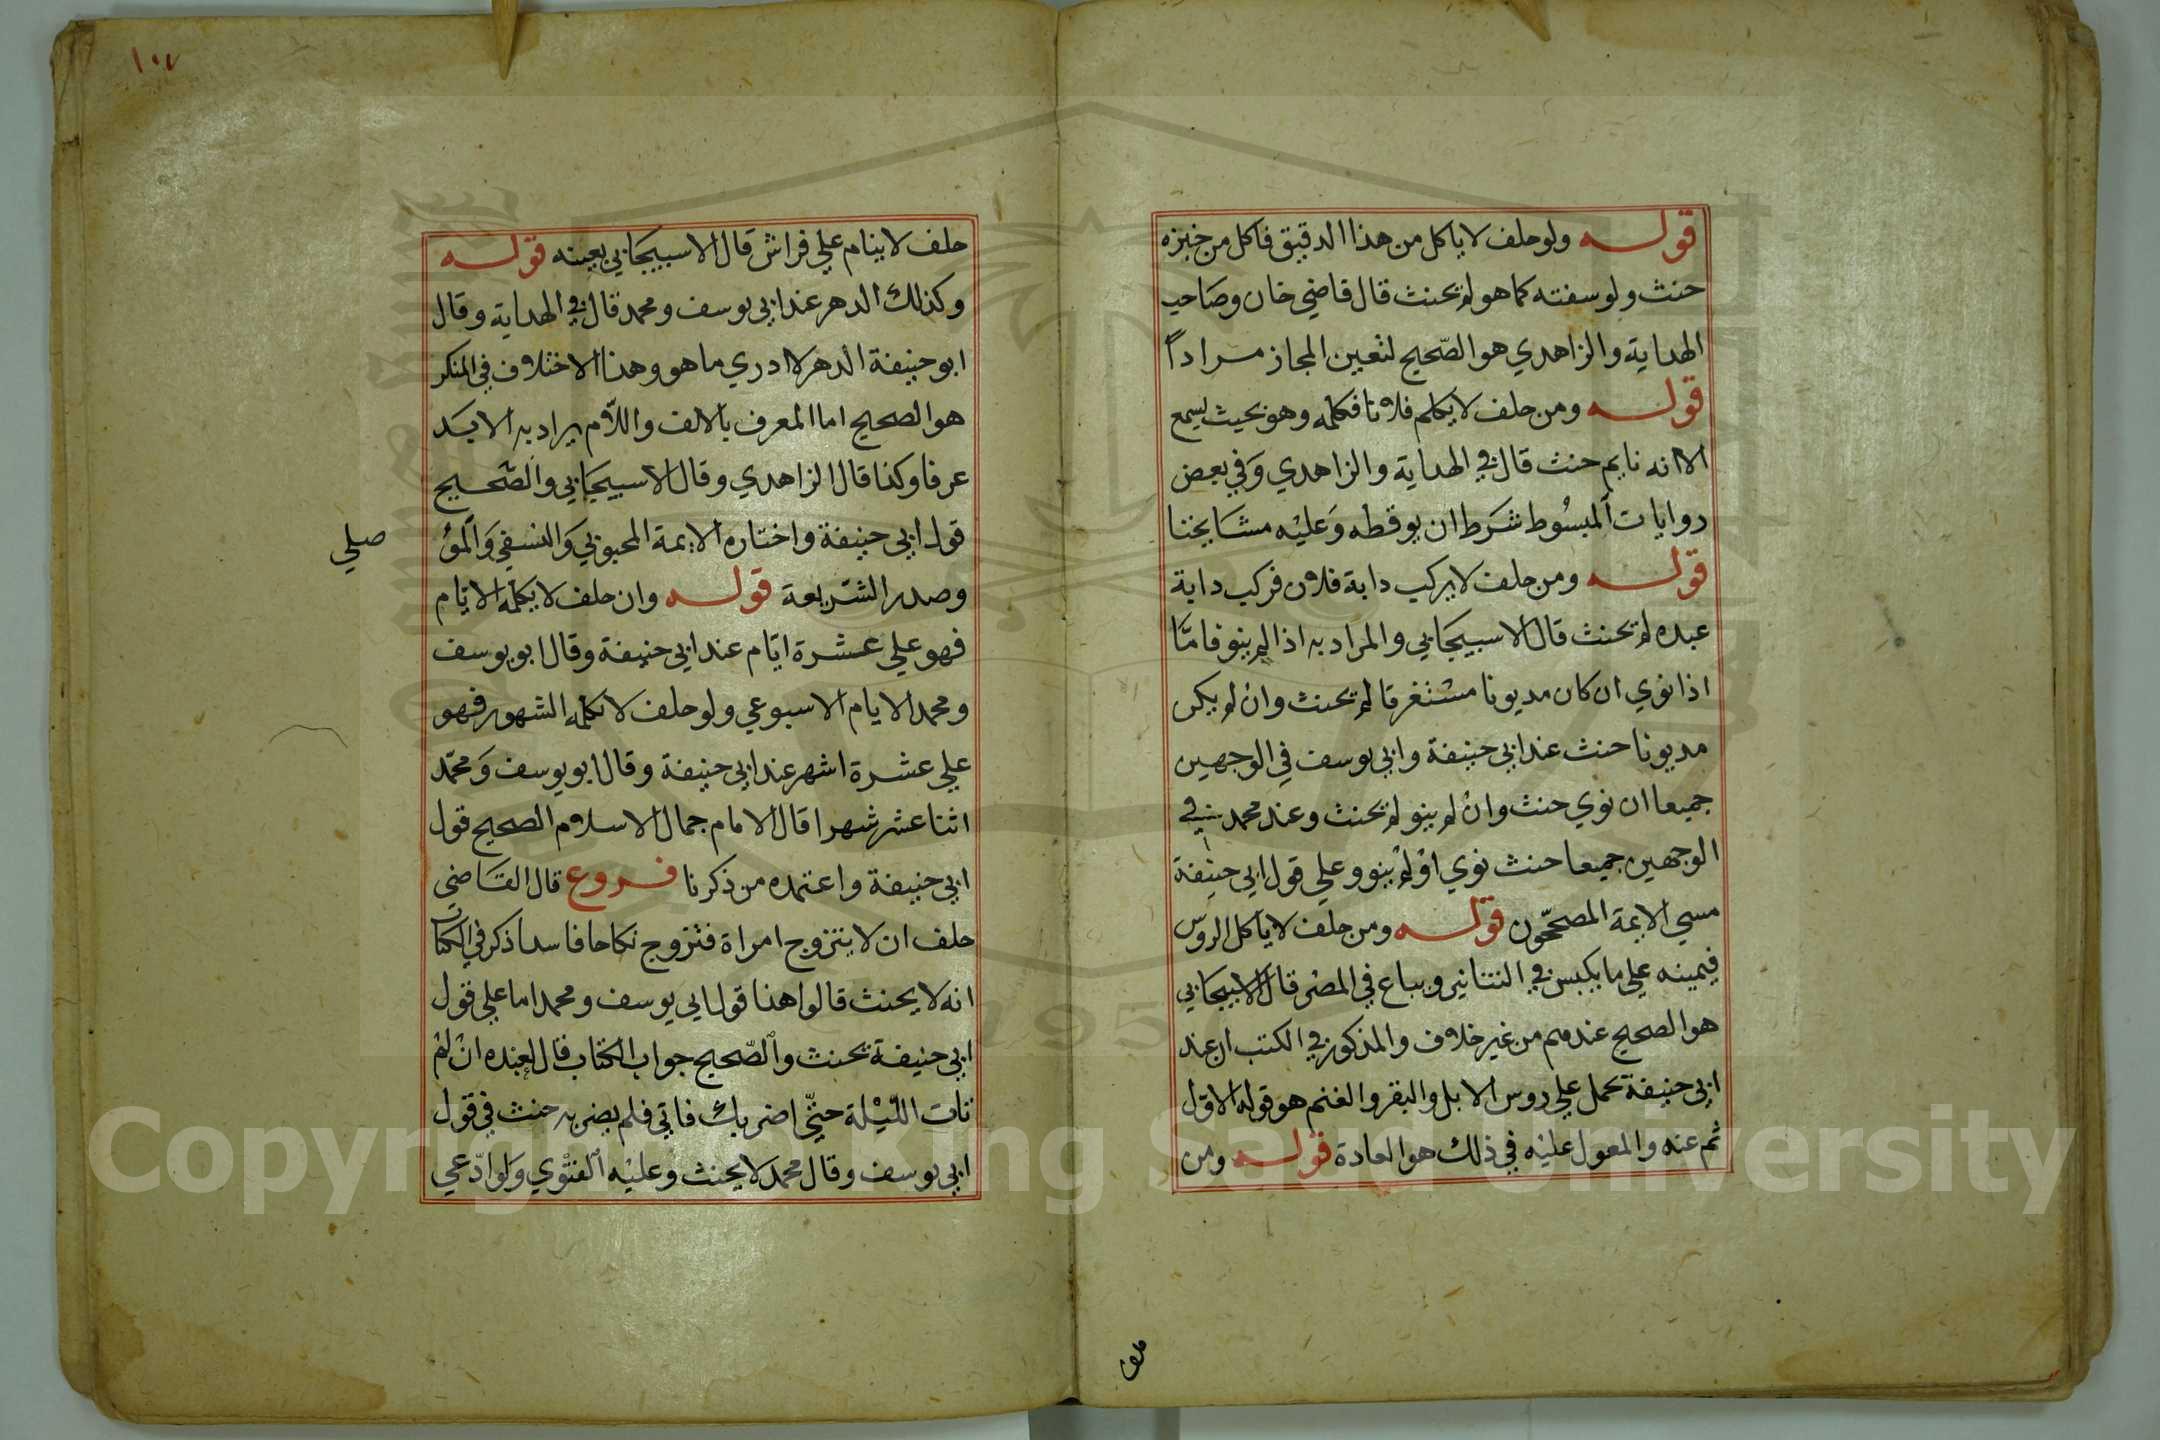 قوله ولو حلف لا ياكل من هذا الدقيق فاكل من خبزه
حنث ولو سفته كما هو لم يحنث قال قاضي خان وصاحب
الهداية والزاهدي هو الصحيح لتعين المجاز مرادا
قوله ومن حلف لا يكلم فلانا فكلمه وهو بحيث يسمع
الا انه نايم حنث قال في الهداية والزاهدي وفي بعض
روايات المبسوط شرط ان يوقظه وعليه مشايخنا
قوله ومن حلف لا يركب دابة فلان فركب دابة
عبده لم يحنث قال الاسبيجابي والمراد به اذا لم ينو فاما
اذا نوي ان كان مديونا مستغرقا لم يحنث وان لم يكن
مديونا حنث عند ابي حنيفة وابي يوسف في الوجهين
جميعا ان نوي حنث وان لم ينو لم يحنث وعند محمد في
الوجهين جميعا حنث نوي او لم ينو وعلي قول ابي حنيفة
مسي الايمة المصححون قوله ومن حلف لا ياكل الروس
فيمينه علي ما يكبس في التنانير ويباع في المصر قال الاسبيجابي
هو الصحيح عندهم من غير خلاف والمذكور في الكتب ان عند
ابي حنيفة يحمل علي روس الابل والبقر والغنم هو قوله الاول
ثم عنه والمعول عليه في ذلك هو العادة قوله ومن
حلف
١٠٧
حلف لا ينام علي فراش قال الاسبيجابي بعينه قوله
وكذلك الدهر عند ابي يوسف ومحمد قال في الهداية وقال
ابو حنيفة الدهر لا ادري ما هو وهذا الاختلاف في المنكر
هو الصحيح اما المعرف بالالف واللام يراد به الابد
عرفا وكذا قال الزاهدي وقال الاسبيجابي والصحيح
قول ابي حنيفة واختاره الايمة المحبوبي والنسفي والمو
صلي
وصدر الشريعة قوله وان حلف لا يكلمه الايام
فهو علي عشرة ايام عند ابي حنيفة وقال ابو يوسف
ومحمد الايام الاسبوعي ولو حلف لا يكلمه الشهور فهو
علي عشرة اشهر عند ابي حنيفة وقال ابو يوسف ومحمد
اثنا عشر شهرا قال الامام جمال الاسلام الصحيح قول
ابي حنيفة واعتمده من ذكرنا فروع قال القاضي
حلف ان لا يتزوج امراة فتزوج نكاحا فاسدا ذكر في الكتاب
انه لا يحنث قالوا هذا قول ابي يوسف ومحمد اما علي قول
ابي حنيفة يحنث والصحيح جواب الكتاب قال لعبده ان لم
تات الليلة حتي اضربك فاتي فلم يضربه حنث في قول
ابي يوسف وقال محمد لا يحنث وعليه الفتوي ولو ادعي
Copyright © King Saud University
1957